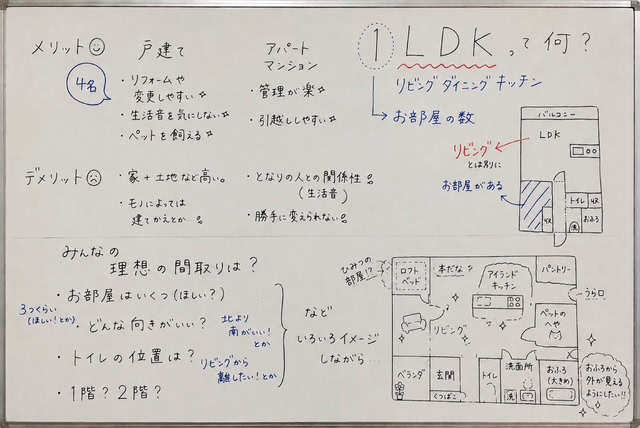 メリット
戸建て
4名
・リフォームや
変更しやすい
・生活音を気にしない
・ペットを飼える
アパート
マンション
・管理が楽
・引越ししやすい
デメリット
・家+土地など高い。
・モノによっては
建てかえとか…。
・となりの人との関係性
(生活音)
・勝手に変えられない
1LDKって何?
リビングダイニングキッチン
お部屋の数
リビング
とは別に
お部屋がある
バルコニー
LDK
トイレ
収
収
洗
おふろ
みんなの
理想の間取りは?
・お部屋はいくつ(ほしい?)
3つくらい
(ほしい!とか)
・どんな向きがいい?
北より
南がいい!
とか
・トイレの位置は?
リビングから
離したい!とか
・1階?2階?
など
いろいろイメージ
しながら…
ひみつの
部屋!?
ロフト
ベッド
本だな
アイランド
キッチン
パントリー
うら口
リビング
ペットの
へや
ベランダ
玄関
くつばこ
トイレ
洗面所
洗
おふろ
(大きめ)
おふろから
外が見える
ようにしたい!!